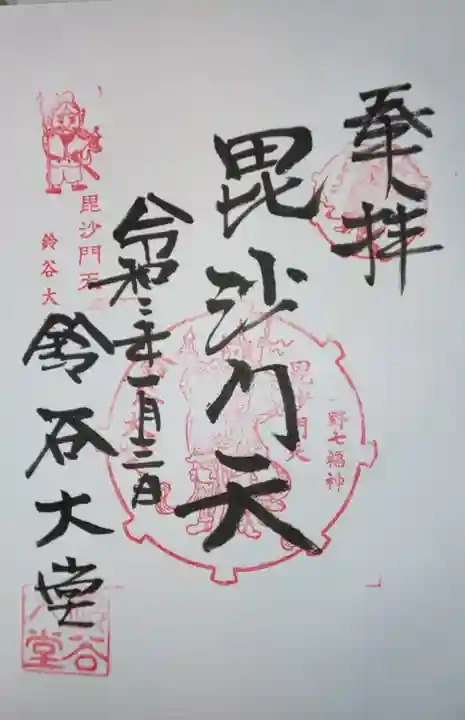 奉拝
毘沙门天
令和二年一月三日
鈴谷大堂
毘沙門天
鈴谷大
毘沙門天
野七福神
谷
堂